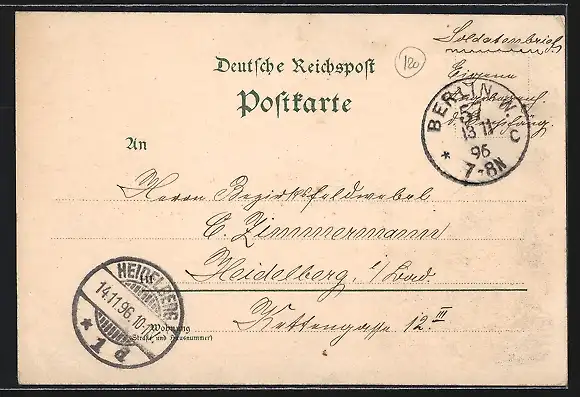 Soldatenbrief
Eigene
Angelegenheit
d. Empfäng.
120
Deutsche Reichspost
Postkarte
BERLIN W
57
13 11
96
7-8N
* C
An
Herrn Bezirksfeldwebel
C. Zimmermann
In Heidelberg i/Bad.
HEIDELBERG
14.11.96.10-
* 1 d
Wohnung
(Straße und Hausnummer)
Kettengasse 12.III